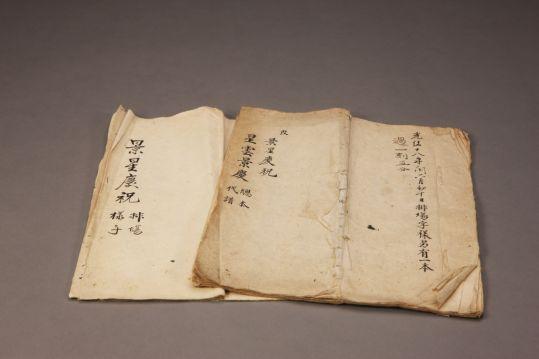 光緒十八年閏六月初十日排場字樣另有一本
過一刻五分
改
景星慶祝
星雲景慶
總本
代譜
景星慶祝
排場
樣子